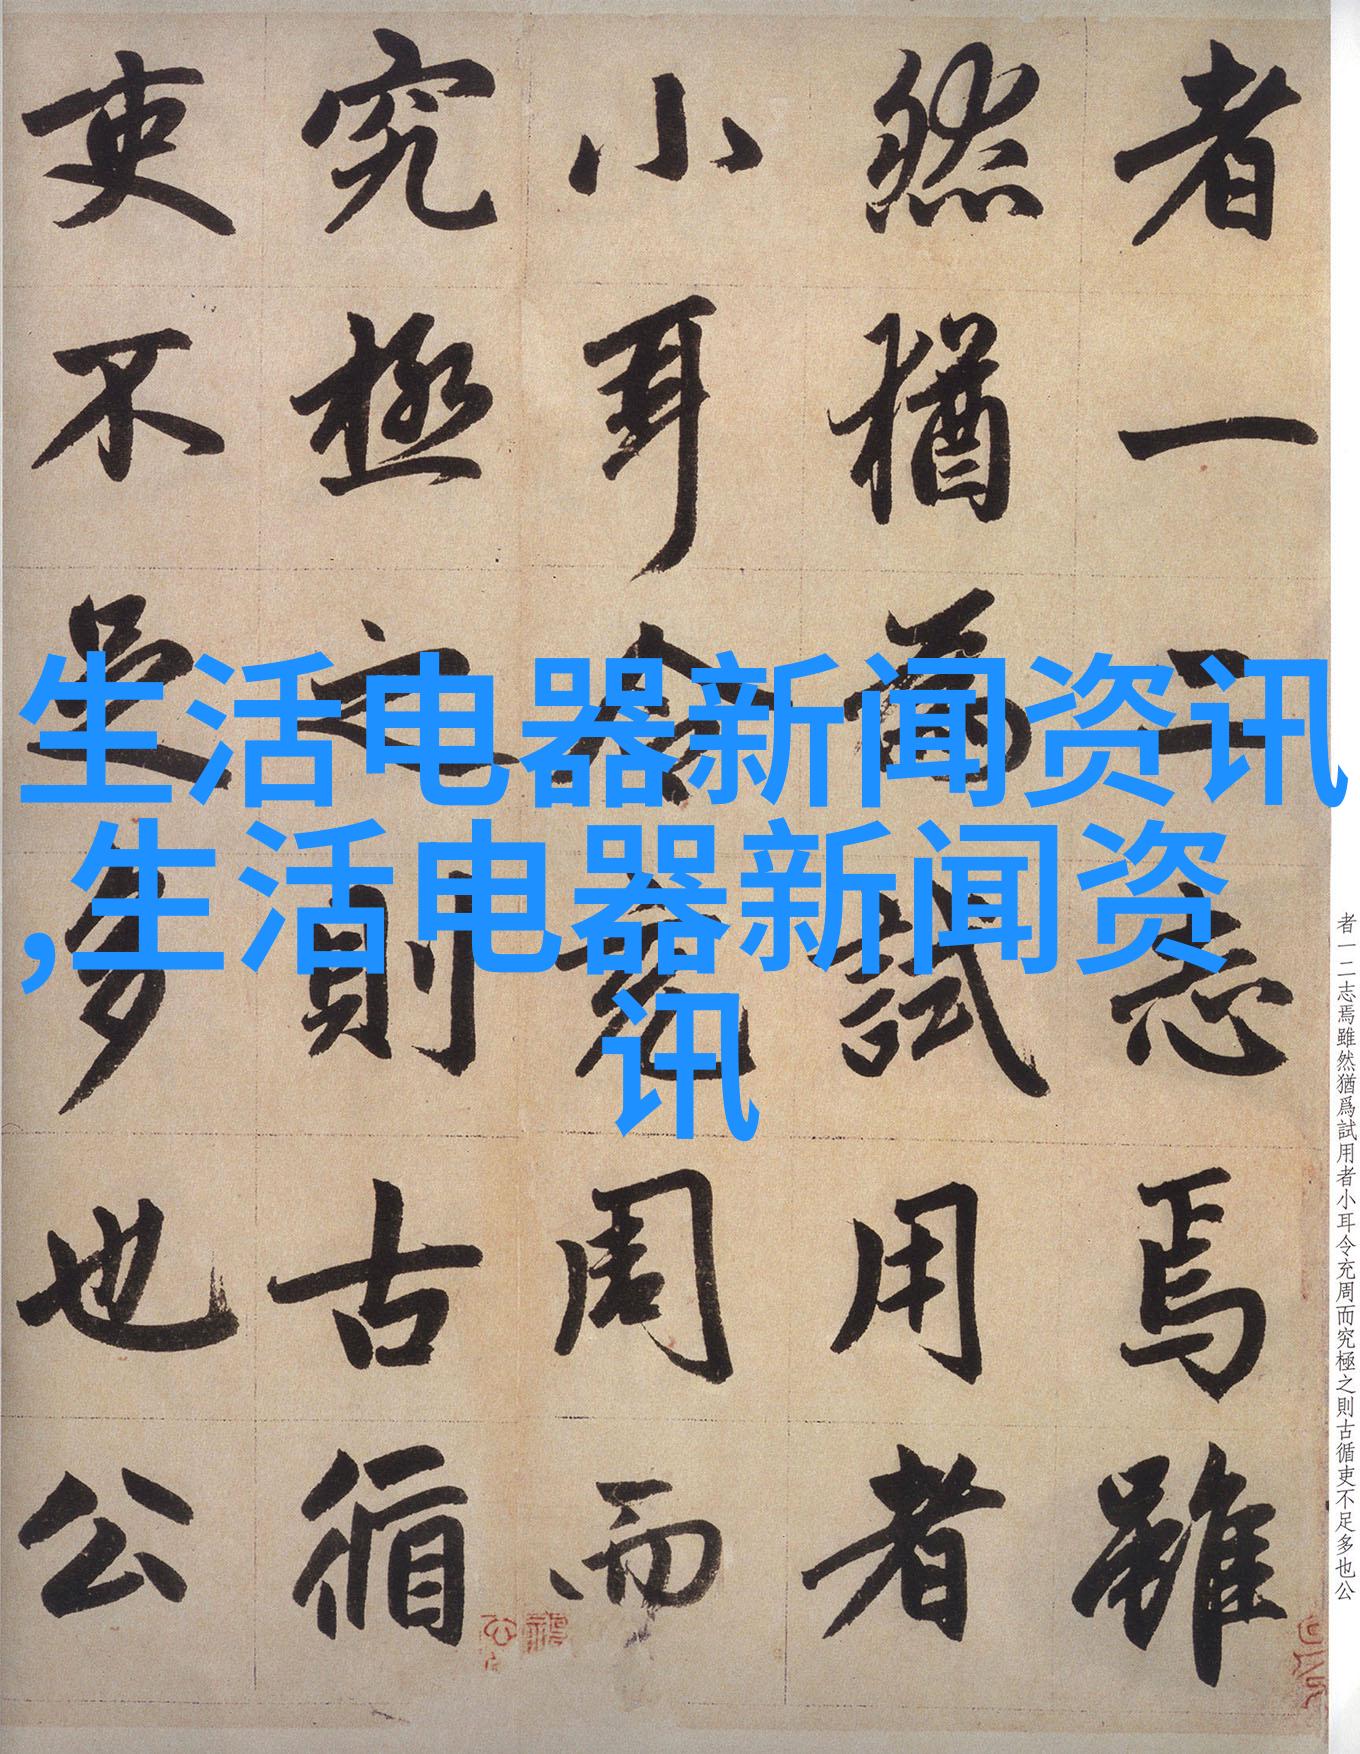 生活电器新闻资讯
,生活电器新闻资
讯
者一二志焉雖
然猶爲試用者
小耳令充周而
究極之則古循
吏不足多也公
者一二志焉雖然猶爲試用者小耳令充周而究極之則古循吏不足多也公